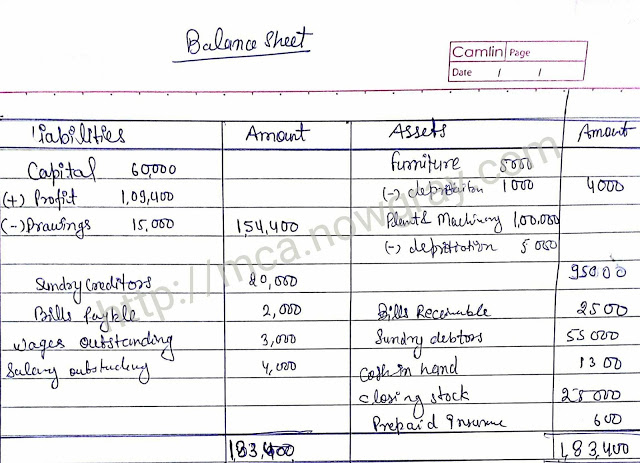 Balance Sheet
Camlin Page
Date / /
Liabilities Amount Assets Amount
Capital 60,000 Furniture 5000
(+) Profit 1,09,400 (-) depritaiton 1000 4000
(-) Drawings 15,000 1,54,400 Plant & Machinery 1,00,000
(-) depritration 5000
Sundry Creditors 20,000 95000
Bills Payble 2,000 Bills Receivable 2500
wages outstanding 3,000 Sundry debtors 55000
Salary outstanding 4,000 Cash in hand 1300
closing stock 25000
Prepaid Insurance 600
1,83,400 1,83,400
http://mca.nowaray.com